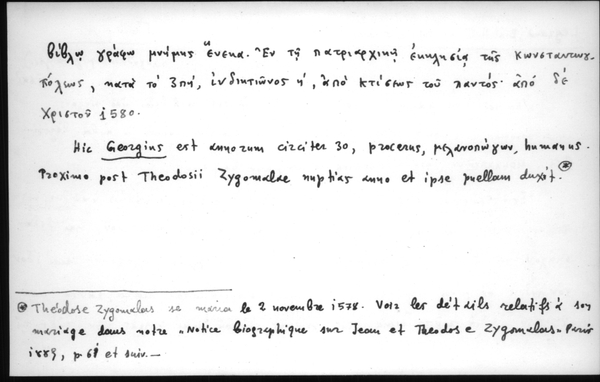 βίβλῳ γράφω μνήμης ἕνεκα. Ἐν τῇ πατριαρχικῇ ἐκκλησίᾳ τῆς Κωνσταντινου-
πόλεως, κατὰ τὸ ͵ζπή, ἰνδικτιῶνος ή, ἀπὸ κτίσεως τοῦ παντός· ἀπὸ δὲ
Χριστοῦ 1580.
Hic Georgius est annorum circiter 30, procerus, μελανοπώγων, humanus.
Proximo post Theodosii Zygomalae nuptias anno et ipse puellam duxit.*
* Théodose Zygomalas se maria le 2 novembre 1578. Voir les détails relatifs à son
mariage dans notre „Notice biographique sur Jean et Theodose Zygomalas" Paris
1889, p 61 et suiv.—